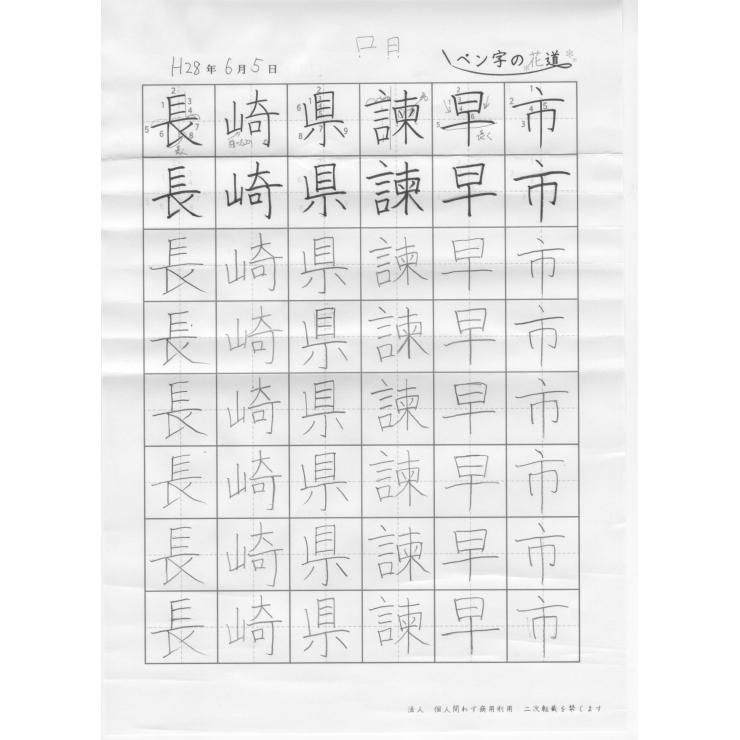 口目
H28年6月5日 ペン字の花道
長崎県諫早市
長崎県諫早市
長崎県諫早市
長崎県諫早市
長崎県諫早市
長崎県諫早市
長崎県諫早市
長崎県諫早市
法人 個人問わず商用利用 二次転載を禁じます